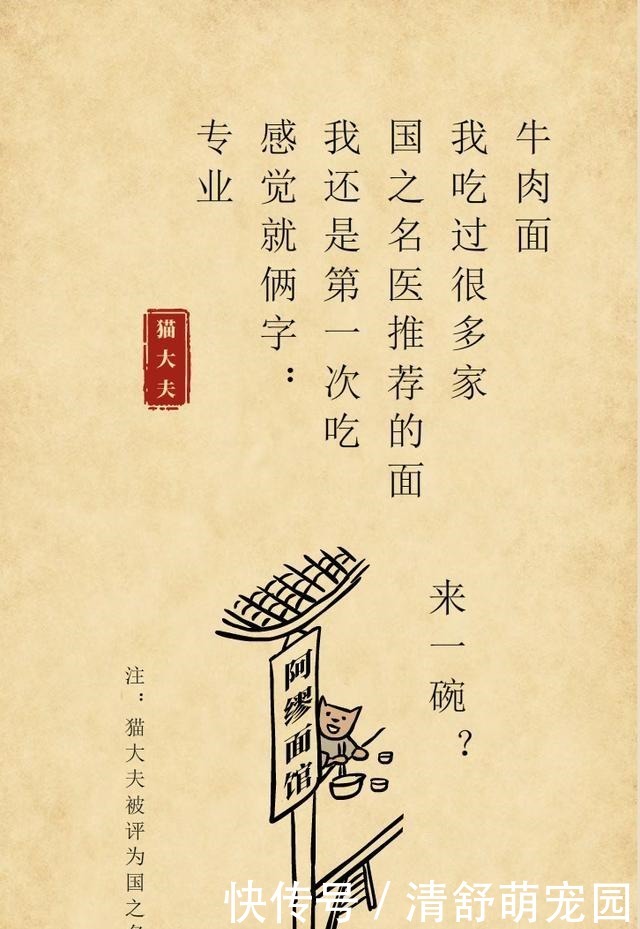 牛肉面
我吃过很多家
国之名医推荐的面
我还是第一次吃
感觉就俩字：
专业
猫大夫
来一碗？
阿缪面馆
注：猫大夫被评为国之
快传号 / 清舒萌宠园